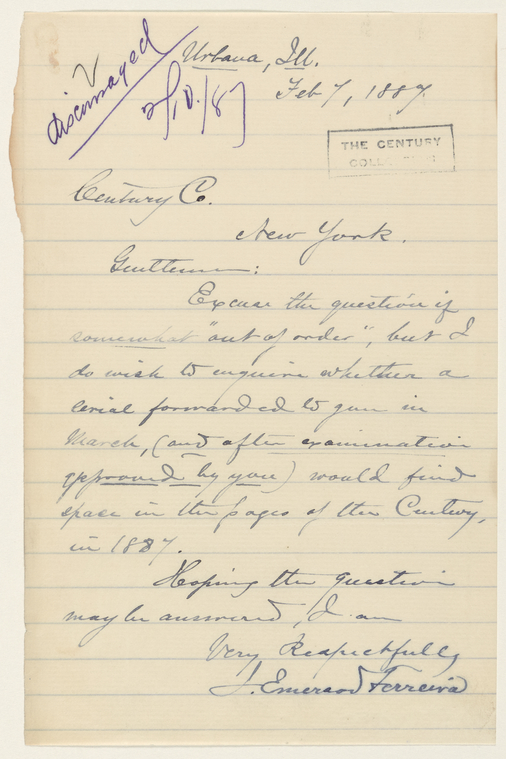 discouraged
2/10/87
Urbana, Ill.
Feb 7, 1887.
THE CENTURY
COLLECTION
Century Co.
New York.
Gentlemen:
Excuse the question if
somewhat "out of order", but I
do wish to enquire whether a
serial forwarded to you in
March, (and after examination
approved by you) would find
space in the pages of the Century,
in 1887.
Hoping the question
may be answered, I am
Very Respectfully
J. Emerson Ferreira